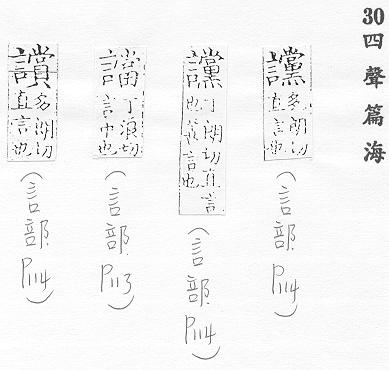 30 四聲篇海
讜 多朗切直言也(言部.P114)
讜 丁朗切直言也言也(言部.P114)
譡 丁浪切言中也(言部.P113)
多朗切直言也(言部.P114)